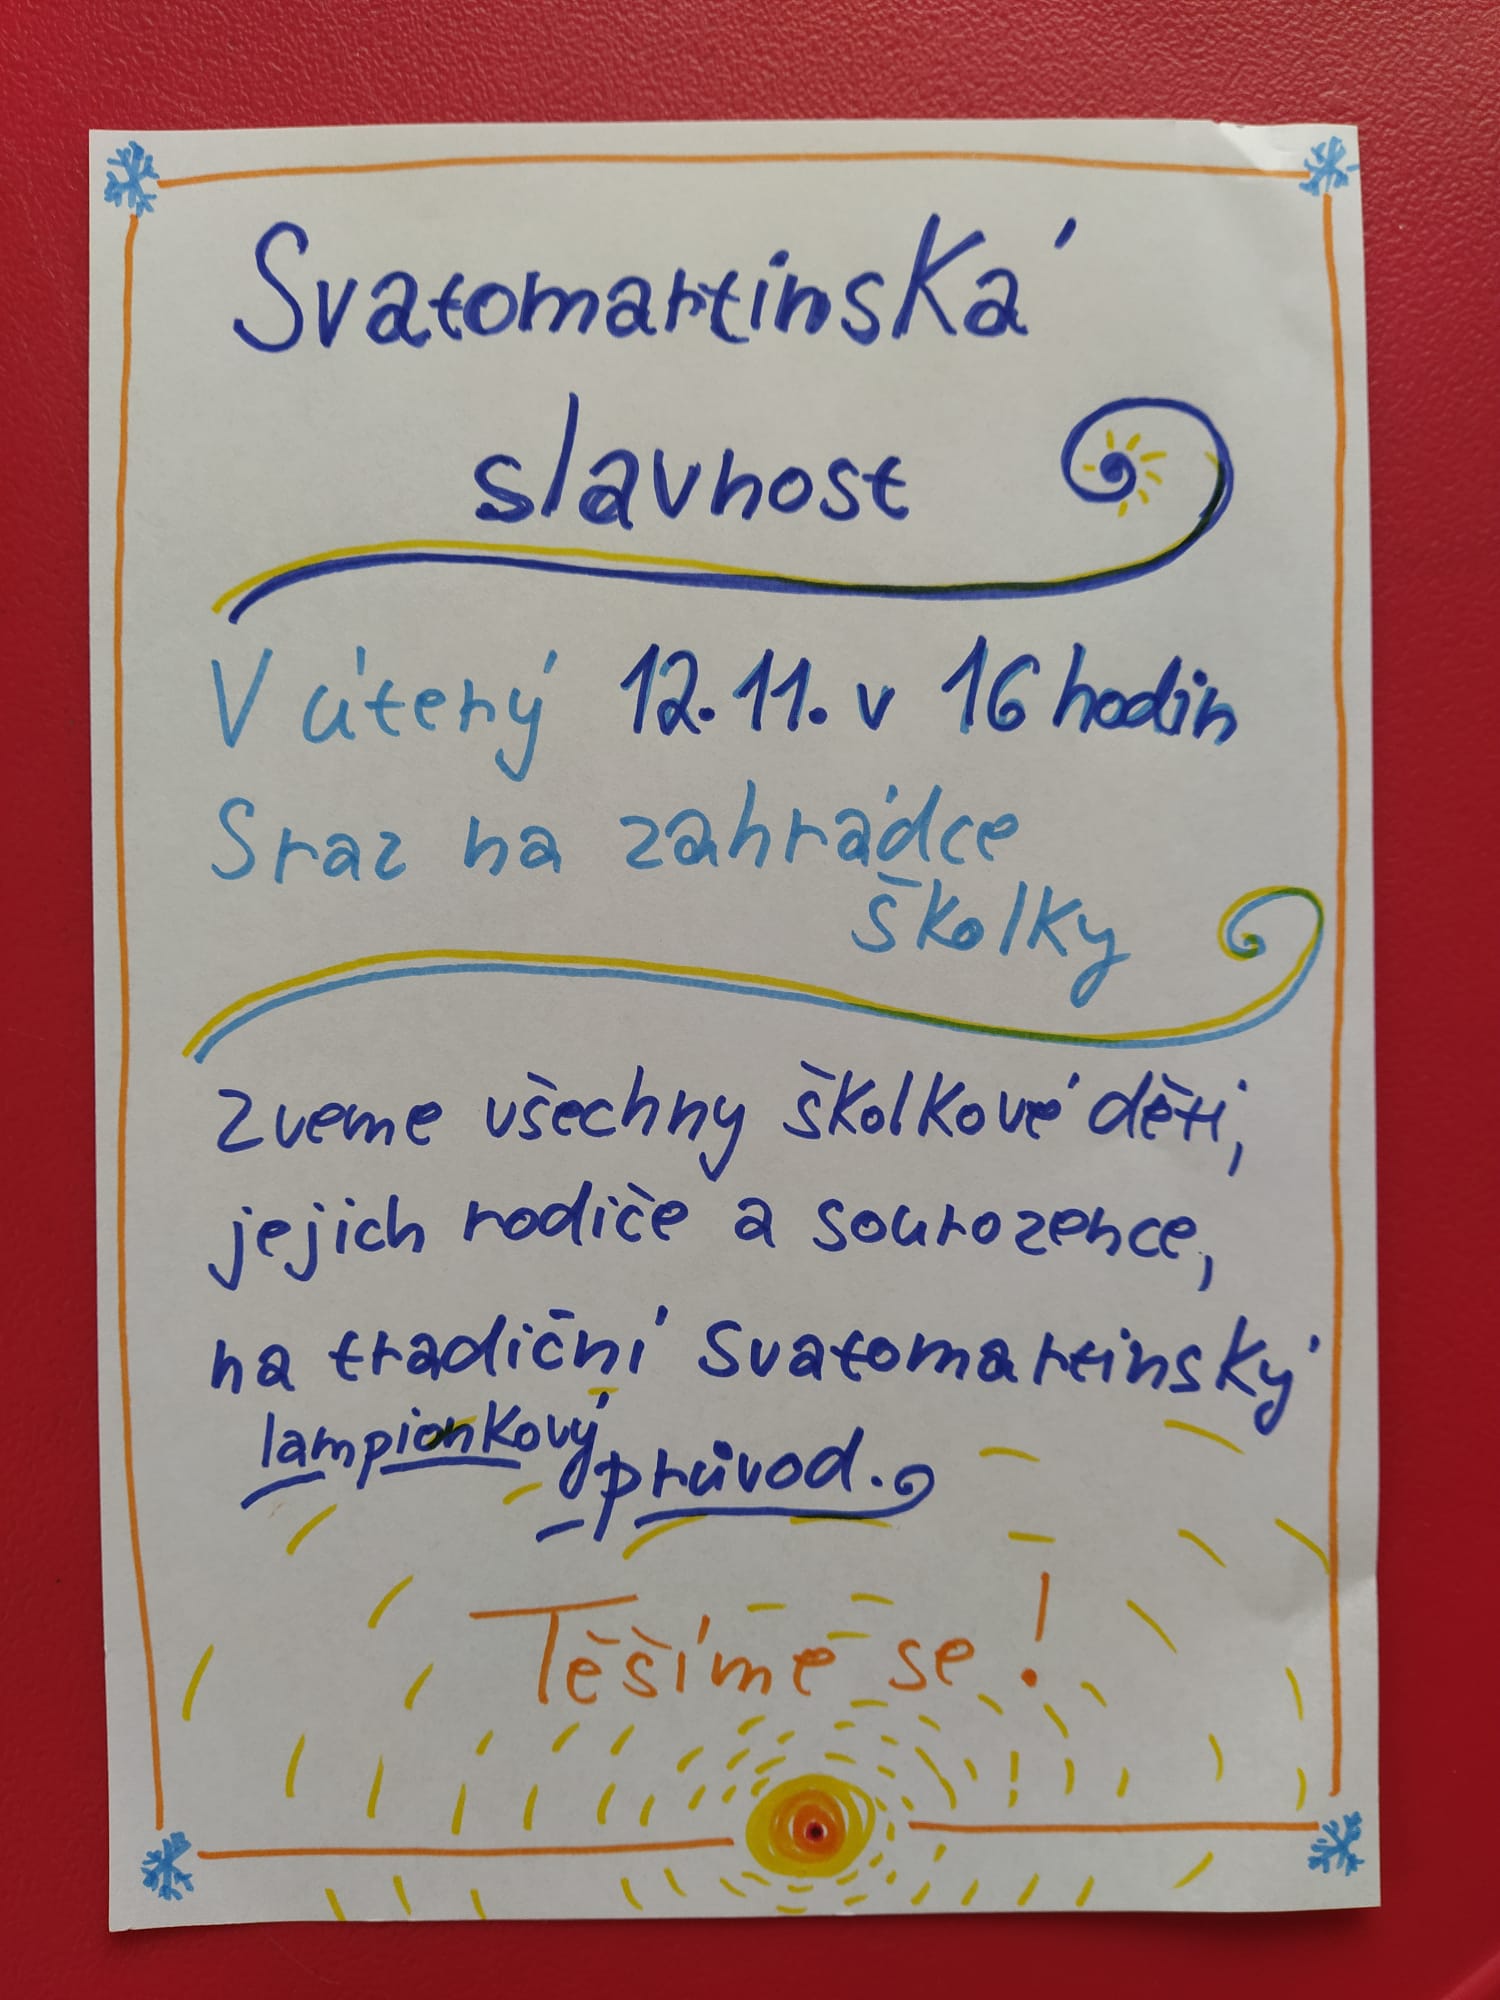 Svatomartinská
slavnost
V úterý 12.11. v 16 hodin
Sraz na zahrádce
školky
Zveme všechny školkové děti,
jejich rodiče a sourozence,
na tradiční svatomartinský
lampionkový
průvod.
Těšíme se!